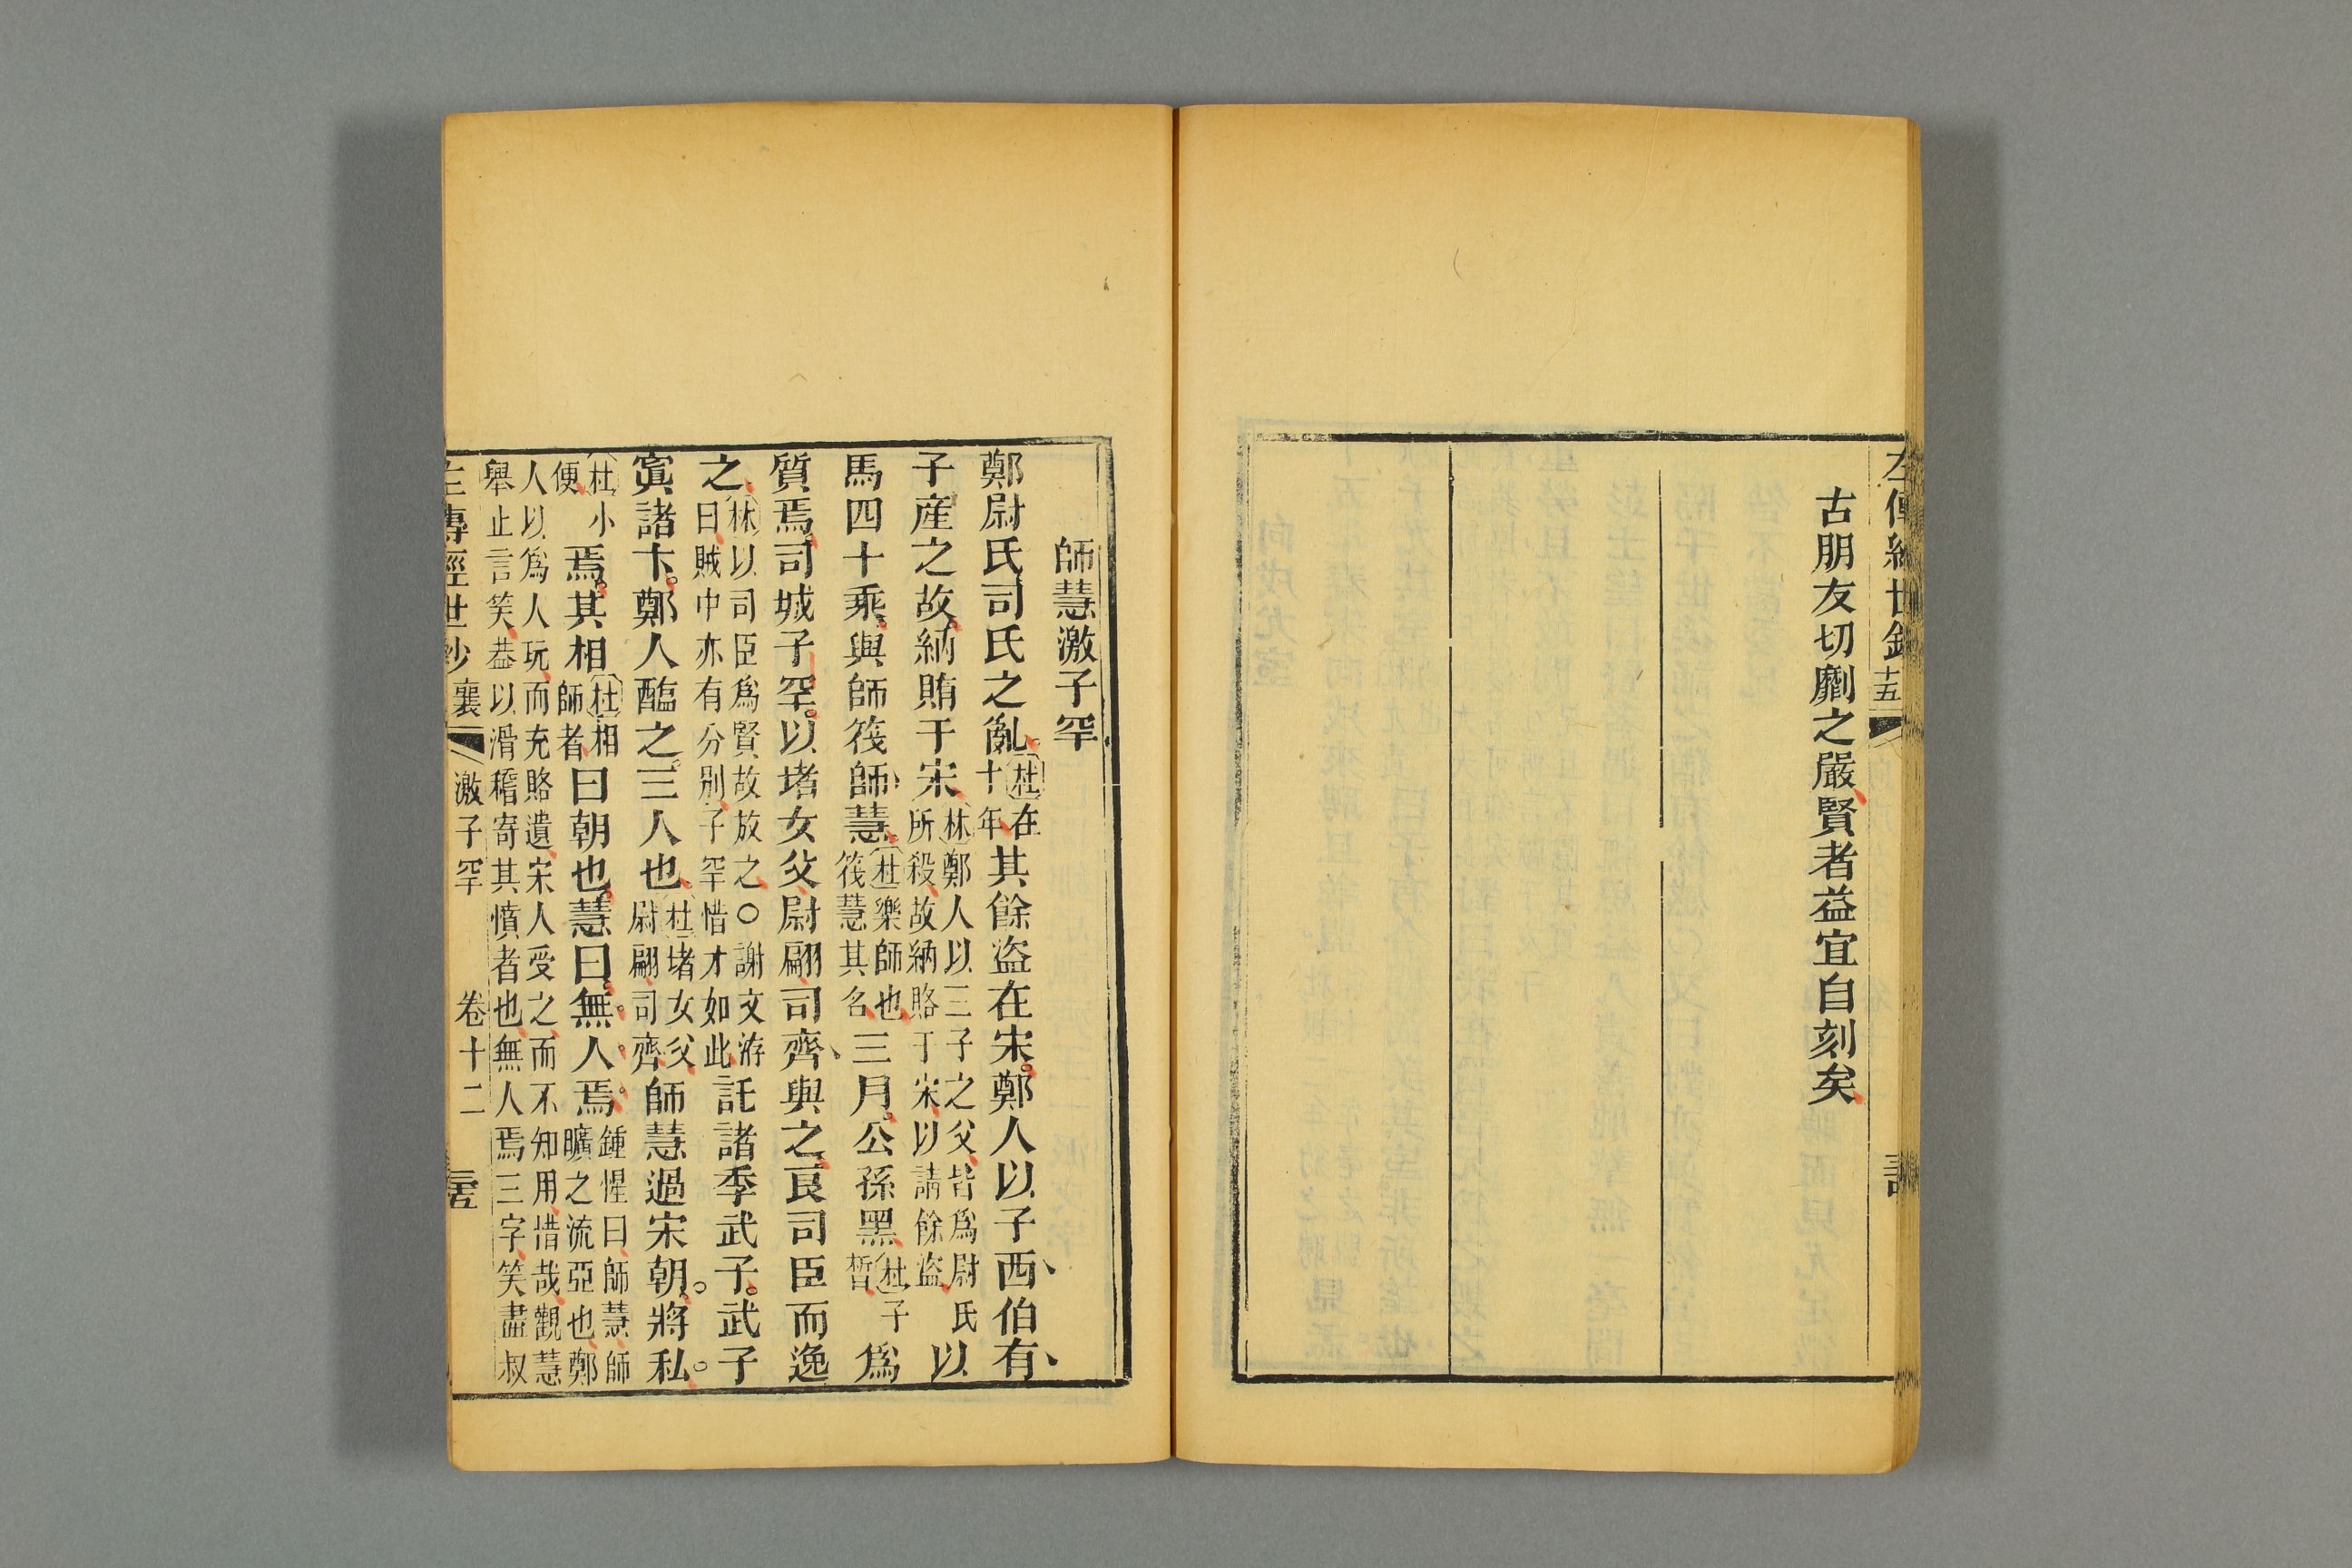 古朋友切劘之嚴賢者益宜自刻矣
師慧激子罕
鄭尉氏司氏之亂杜在十年其餘盜在宋鄭人以子西伯有
子產之故納賄于宋林鄭人以三子之父皆爲尉氏所殺故納賂于宋以請餘盜以
馬四十乘與師筏師慧杜樂師也筏慧其名三月公孫黑杜子晳爲
質焉司城子罕以堵女父尉翩司齊與之良司臣而逸
之林以司臣爲賢故放之○謝文游曰賊中亦有分別子罕惜才如此託諸季武子武子
寘諸卞鄭人醢之三人也杜堵女父尉翩司齊師慧過宋朝將私
杜小便焉其相杜相師者曰朝也慧曰無人焉鍾惺曰師慧師曠之流亞也鄭
人以爲人玩而充賂遺宋人受之而不知用惜哉觀慧
舉止言笑葢以滑稽寄其憤者也無人焉三字笑盡叔
左傳經世鈔 襄 激子罕 卷十二